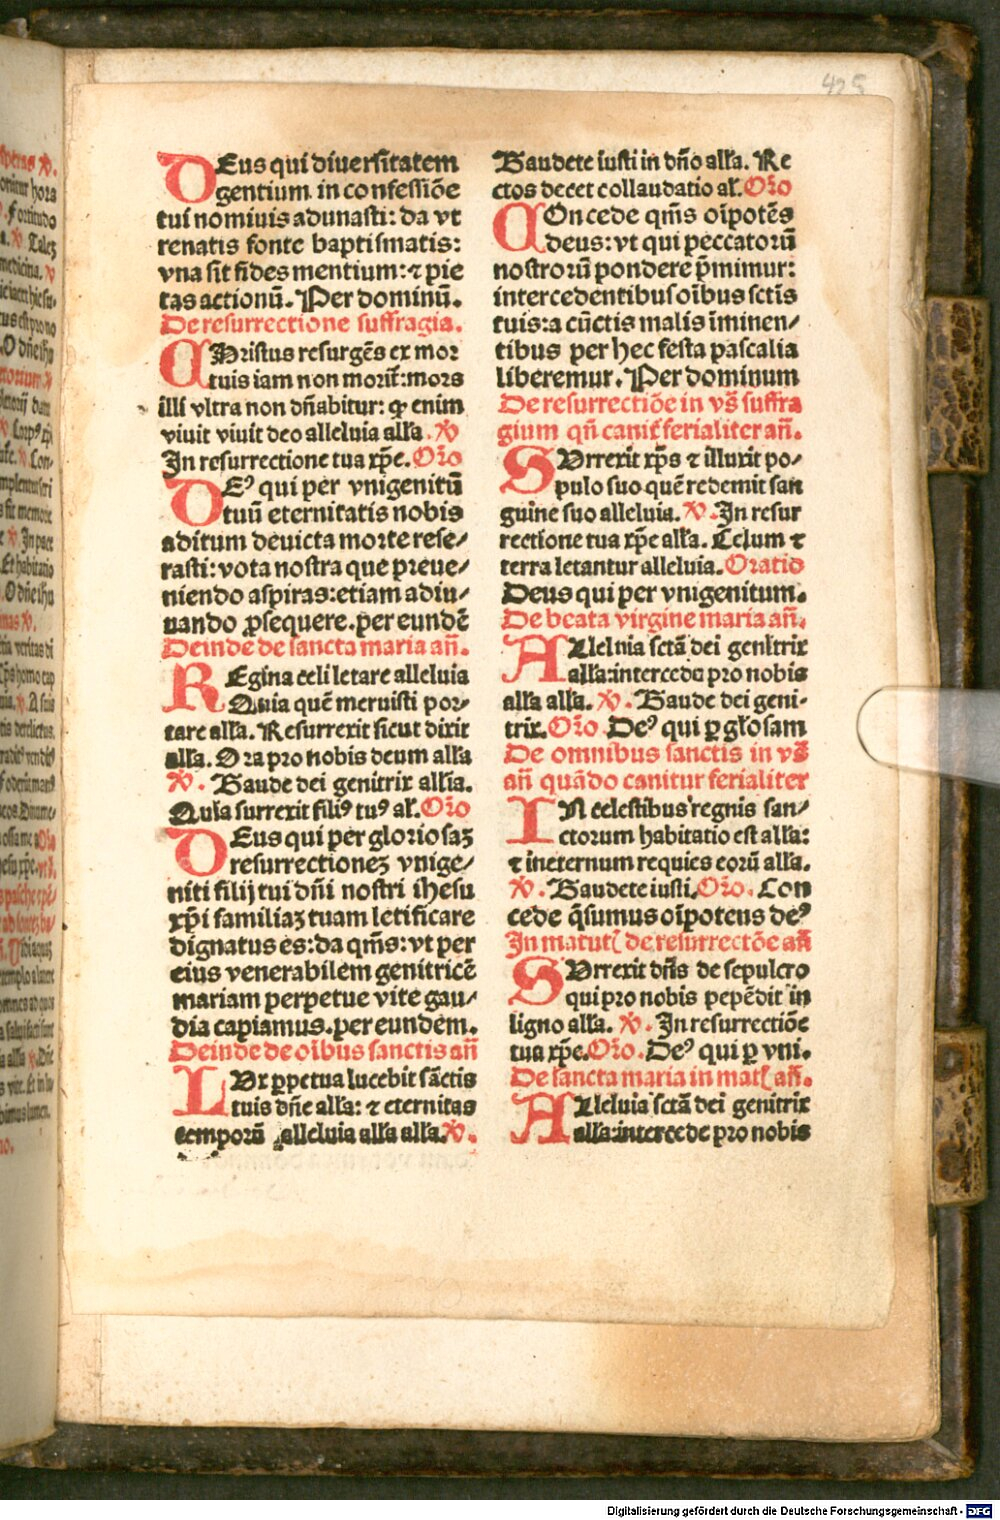 425
DEus qui diuersitatem
gentium in confessiõe
tui nomiuis adunasti: da vt
renatis fonte baptismatis:
vna sit fides mentium: ⁊ pie
tas actionũ. Per dominũ.
De resurrectione suffragia.
CHristus resurgẽs ex mor
tuis iam non morit̃: mors
illi vltra non dñabitur: ꝙ enim
viuit viuit deo alleluia alła. ℣
In resurrectione tua xp̃e. Oĩo
DEꝰ qui per vnigenitũ
tuũ eternitatis nobis
aditum deuicta morte rese/
rasti: vota nostra que preue/
niendo aspiras: etiam adiu/
uando ꝓsequere. per eundẽ
Deinde de sancta maria añ.
REgina celi letare alleluia
Quia quẽ meruisti por-
tare alła. Resurrexit sicut dixit
alła. Ora pro nobis deum alła
℣. Gaude dei genitrix allia.
Quia surrexit filiꝰ tuꝰ ał. Oĩo
DEus qui per gloriosaʒ
resurrectioneʒ vnige/
niti filij tui dñi nostri ihesu
xp̃i familiaʒ tuam letificare
dignatus es: da qm̃s: vt per
eius venerabilem genitricẽ
mariam perpetue vite gau/
dia capiamus. per eundem.
Deinde de oĩbus sanctis añ
LUx ꝑpetua lucebit sãctis
tuis dñe alła: ⁊ eternitas
temporũ alleluia alła alła. ℣.
Gaudete iusti in dño alła. Re
ctos decet collaudatio ał. Oĩo
COncede qm̃s oĩpotẽs
deus: vt qui peccatorũ
nostrorũ pondere p̃mimur:
intercedentibus oĩbus sctĩs
tuis: a cũctis malis ĩminen/
tibus per hec festa pascalia
liberemur. Per dominum
De resurrectiõe in vs̃ suffra
gium qñ canit̃ ferialiter añ.
SUrrexit xp̃s ⁊ illuxit po/
pulo suo quẽ redemit san
guine suo alleluia. ℣. In resur
rectione tua xp̃e alła. Celum ⁊
terra letantur alleluia. Oratio
Deus qui per vnigenitum.
De beata virgine maria añ.
ALleluia sctã dei genitrix
alła: intercede pro nobis
alła alła. ℣. Gaude dei geni-
trix. Oĩo. Deꝰ qui ꝑ głosam
De omnibus sanctis in vs̃
añ quãdo canitur ferialiter
IN celestibus regnis san-
ctorum habitatio est alła:
⁊ in eternum requies eorũ alła.
℣. Gaudete iusti. Oĩo. Con
cede q̃sumus oĩpotens deꝰ
In matut̃ de resurrectõe añ
SUrrexit dñs de sepulcro
qui pro nobis pepẽdit in
ligno alła. ℣. In resurrectiõe
tua xp̃e. Oĩo. Deꝰ qui ꝑ vni.
De sancta maria in mat̃ añ.
ALleluia sctã dei genitrix
alła: intercede pro nobis
Digitalisierung gefördert durch die Deutsche Forschungsgemeinschaft - DFG